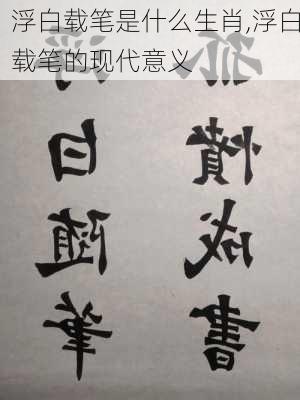 浮白载笔是什么生肖,浮白
载笔的现代意义
浮白随筆
孤憤成書